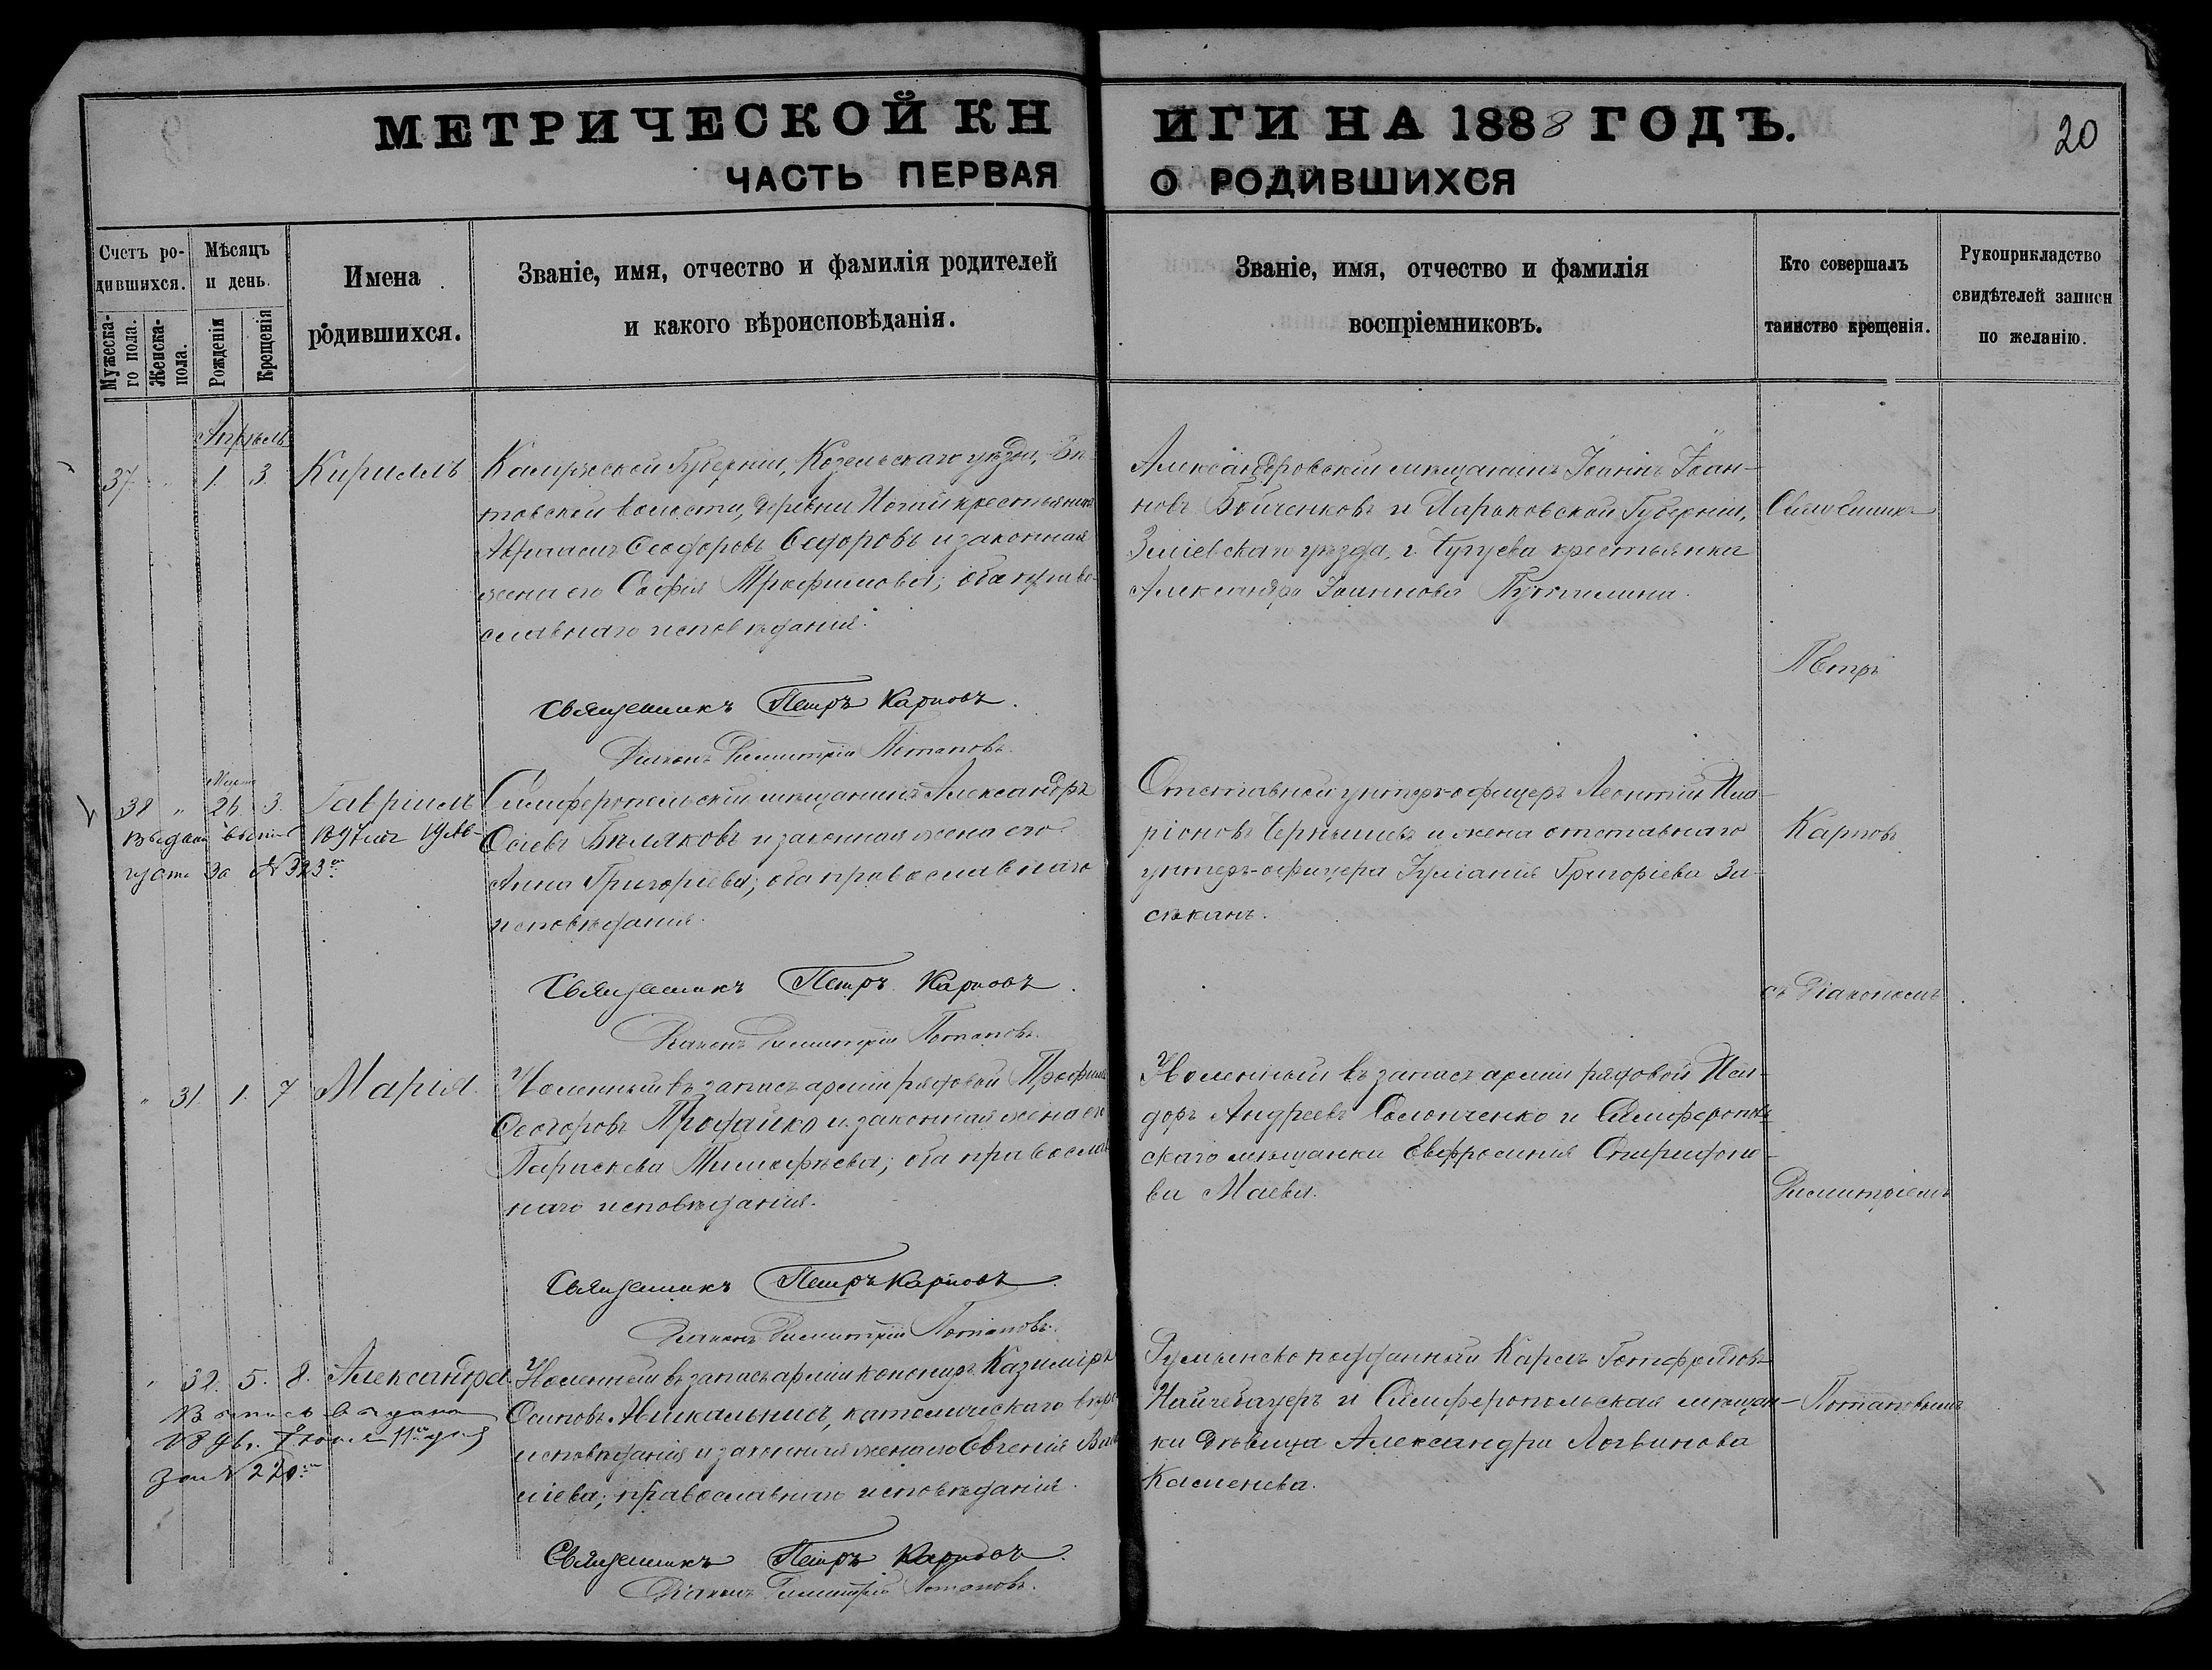 МЕТРИЧЕСКОЙ КНИГИ НА 1888 ГОДЪ.
20
ЧАСТЬ ПЕРВАЯ О РОДИВШИХСЯ
Счетъ ро-
дившихся.
Мужеска-
го пола.
Женска-
пола.
Мѣсяцъ
и день.
Рожденія
Крещенія
Имена
родившихся.
Званіе, имя, отчество и фамилія родителей
и какого вѣроисповѣданія.
Званіе, имя, отчество и фамилія
воспріемниковъ.
Кто совершалъ
таинство крещенія.
Рукоприкладство
свидѣтелей записи
по желанію.
Апрѣль
37 " 1. 3. Кириллъ
Калужской Губерніи, Козельскаго уѣзда,
волости, деревни крестьянинъ
Феодоровъ и законная
жена его Софія Трофимова; оба право-
славнаго исповѣданія.
Священникъ Петръ Карповъ.
Діаконъ Димитрій Потаповъ.
Александровскій мѣщанинъ Іоаннъ Іоан-
новъ Бойченковъ и Харьковской Губерніи,
Зміевскаго уѣзда, г. Чугуева крестьянка
Александра Іоаннова
Священникъ
Петръ
Карповъ
съ Діакономъ
Димитріемъ
Потаповымъ
Марта
38 " 26. 3. Гавріилъ
1897 года 19 Ав-
густа За № 323
Симферопольскій мѣщанинъ Александръ
Бѣляковъ и законная жена его
Анна Григорьева; оба православнаго
исповѣданія.
Священникъ Петръ Карповъ.
Діаконъ Димитрій Потаповъ.
Отставной унтеръ-офицеръ Леонтій Ила-
ріоновъ Чернышевъ и жена отставнаго
унтеръ-офицера Іуліанія Григоріева За-
сѣканъ.
" 31. 1. 7 Марія.
Уволенный въ запасъ арміи рядовой
Феодоровъ и законная жена его
Параскева Тимофѣева; оба православ-
наго исповѣданія.
Священникъ Петръ Карповъ.
Діаконъ Димитрій Потаповъ.
Уволенный въ запасъ арміи рядовой Иси-
доръ Андреевъ и Симферополь-
скаго мѣщанки Евфросинія Спиридоно-
ва Маева.
" 32. 5. 8. Александра
Выпись выдана
Іюня 11 дня
за № 220
Уволенный въ запасъ арміи Казиміръ
Осиповъ католическаго вѣро-
исповѣданія и законная жена его Евгенія
православнаго исповѣданія.
Священникъ Петръ Карповъ.
Діаконъ Димитрій Потаповъ.
подданный Карлъ Готфридовъ
и Симферопольская мѣщан-
ка дѣвица Александра Логвинова
Каменева.